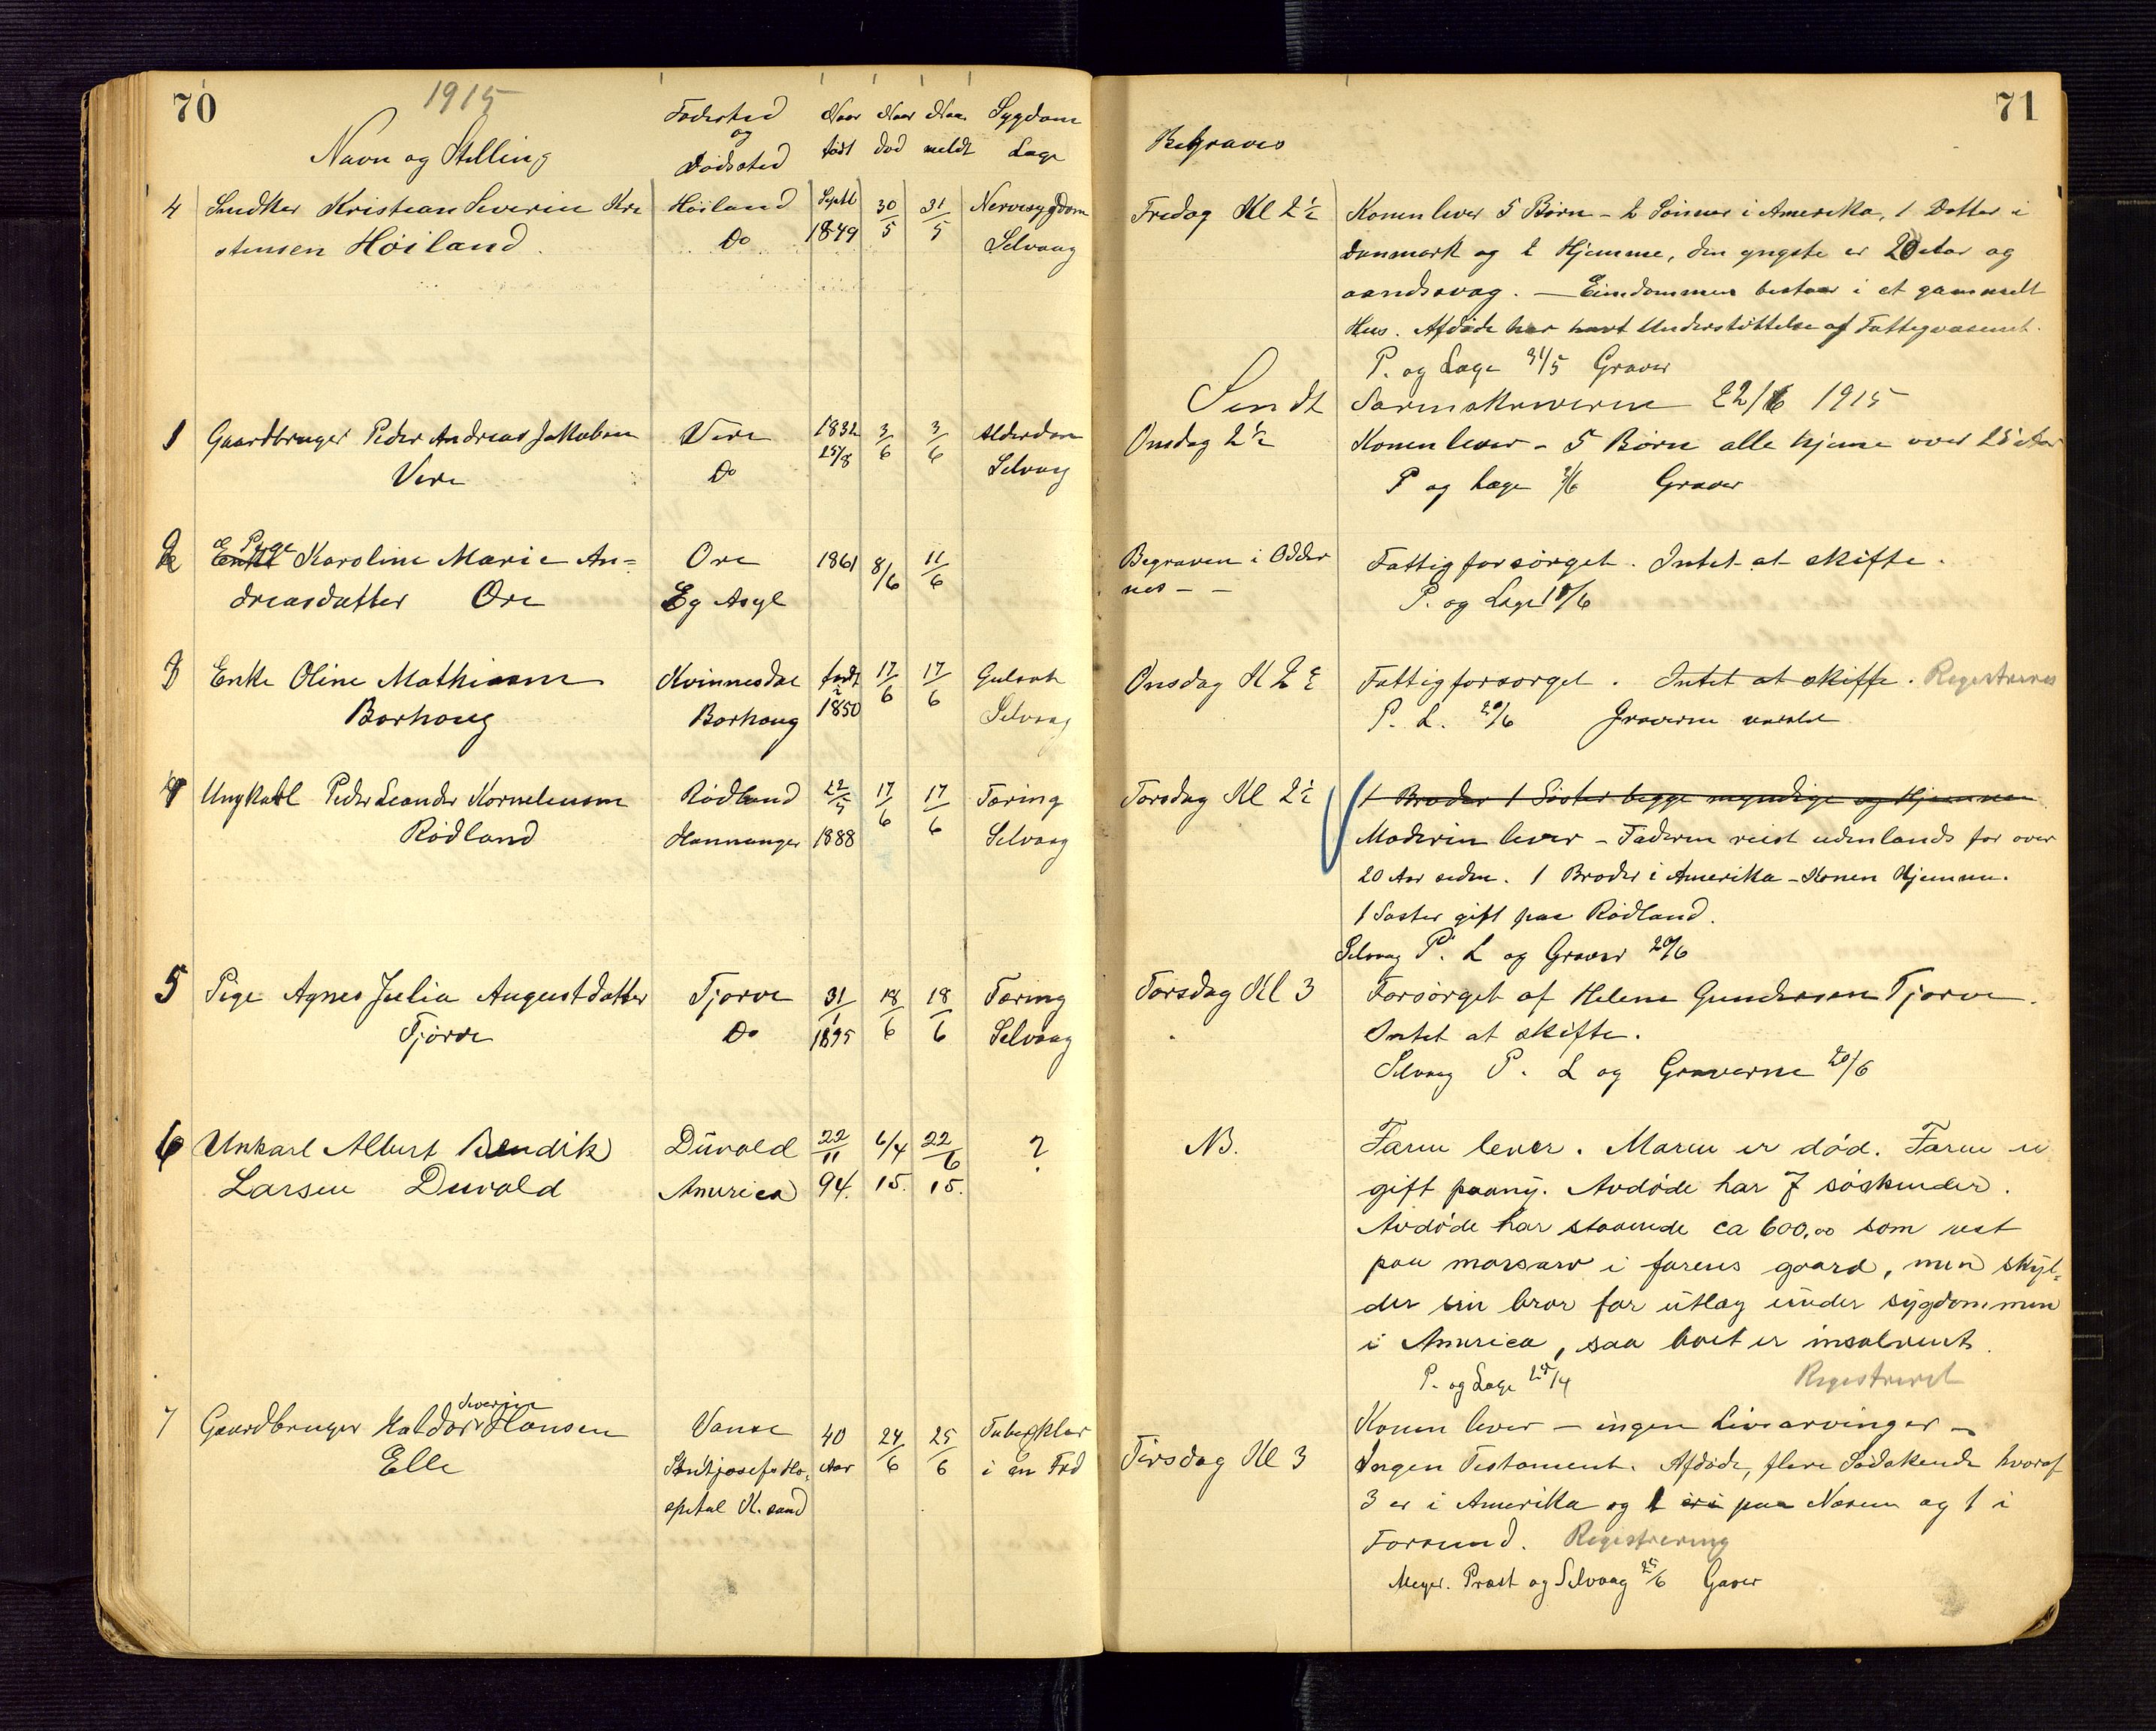 70
1915
Navn og Stilling
Fødested og Dødsted
Naar født
Naar død
Naar meldt
Sygdom Læge
4 Snedker Kristian Severin Kri
stensen Høiland
Høiland
Do
Septb 1849
30/5
31/5
Nervesygdom
Selvaag
1 Gaardbruger Peder Andreas Jakobsen
Vere
Vere
Do
1832 25/8
3/6
3/6
Alderdom
Selvaag
2 Enke Pige Karoline Marie An=
dreasdatter Ore
Ore
Eg Asyl
1861
8/6
11/6
3 Enke Oline Mathiasen
Borhoug
Kvinnesdal
Borhoug
født 1850
17/6
17/6
Gulsot
Selvaag
4 Ungkarl Peder Leander Korneliussen
Rødland
Rødland
Hannanger
22/5 1888
17/6
17/6
Tæring
Selvaag
5 Pige Agnes Julia Augustdatter
Tjørve
Tjørve
Do
31/1 1895
18/6
18/6
Tæring
Selvaag
6 Unkarl Albert Bendik
Larsen Duvold
Duvold
America
22/11 94.
6/4 15.
22/6 15.
?
7 Gaardbruger Haldor Severin Hansen
Elle
Vanse
Sanktjosefs Ho-
spital K.sand
40 Aar
24/6
25/6
Tuberklar
i en Fod
71
Begraves
Fredag Kl 2½
Konen lever 5 Børn - 2 Sønner i Amerika, 1 Datter i
Danmark og 2 Hjemme, den yngste er 20 Aar og
aandssvag. — Eiendommen bestaar i et gammelt
Hus. Afdøde har havt Understøttelse af Fattigvæsenet.
P. og Læge 31/5 Graver
Sendt Sorenskriveren 22/6 1915
Onsdag 2½
Konen lever - 5 Børn alle hjeme over 25 Aar
P og Læge 3/6 Graver
Begraven i Odder
nes - -
Fattigforsørget. Intet at skifte.
P. og Læge 18/6
Onsdag Kl 2½
Fattigforsørget. Intet at skifte. Registreres
P. L. 20/6 Graverne varslet
Torsdag Kl 2½
1 Broder 1 Søster begge myndige og Hjemme
Moderen lever - Faderen reist udenlands for over
20 Aar siden. 1 Broder i Amerika - Konen Hjemme.
1 Søster gift paa Rødland.
Selvaag P. L og Graver 20/6
Torsdag Kl 3
Forsørget af Helene Gundersen Tjørve.
Intet at skifte.
Selvaag P. L og Graverne 20/6
NB.
Faren lever. Moren er død. Faren er
gift paany. Avdøde har 7 søskender.
Avdøde har staaende ca 600,00 som rest
paa morsarv i farens gaard, men skyl=
der sin bror for utlæg under sygdommen
i America, saa boet er insolvent.
P. og Læge Registreret
Konen lever — ingen Livsarvinger —
Tirsdag Kl 3
Ingen Testament. Afdøde, flere Sødskende hvoraf
3 er i Amerika og 1 paa Næsem og 1 i
Farsund. Registrering
Meyer. Præst og Selvaag 25/6 Graver